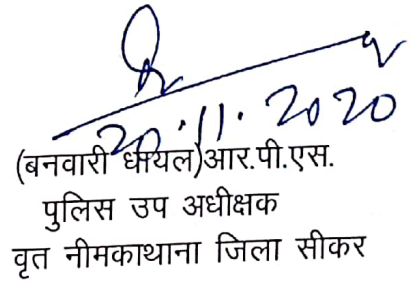 20.11.2020
(बनवारी धायल)आर.पी.एस.
पुलिस उप अधीक्षक
वृत नीमकाथाना जिला सीकर